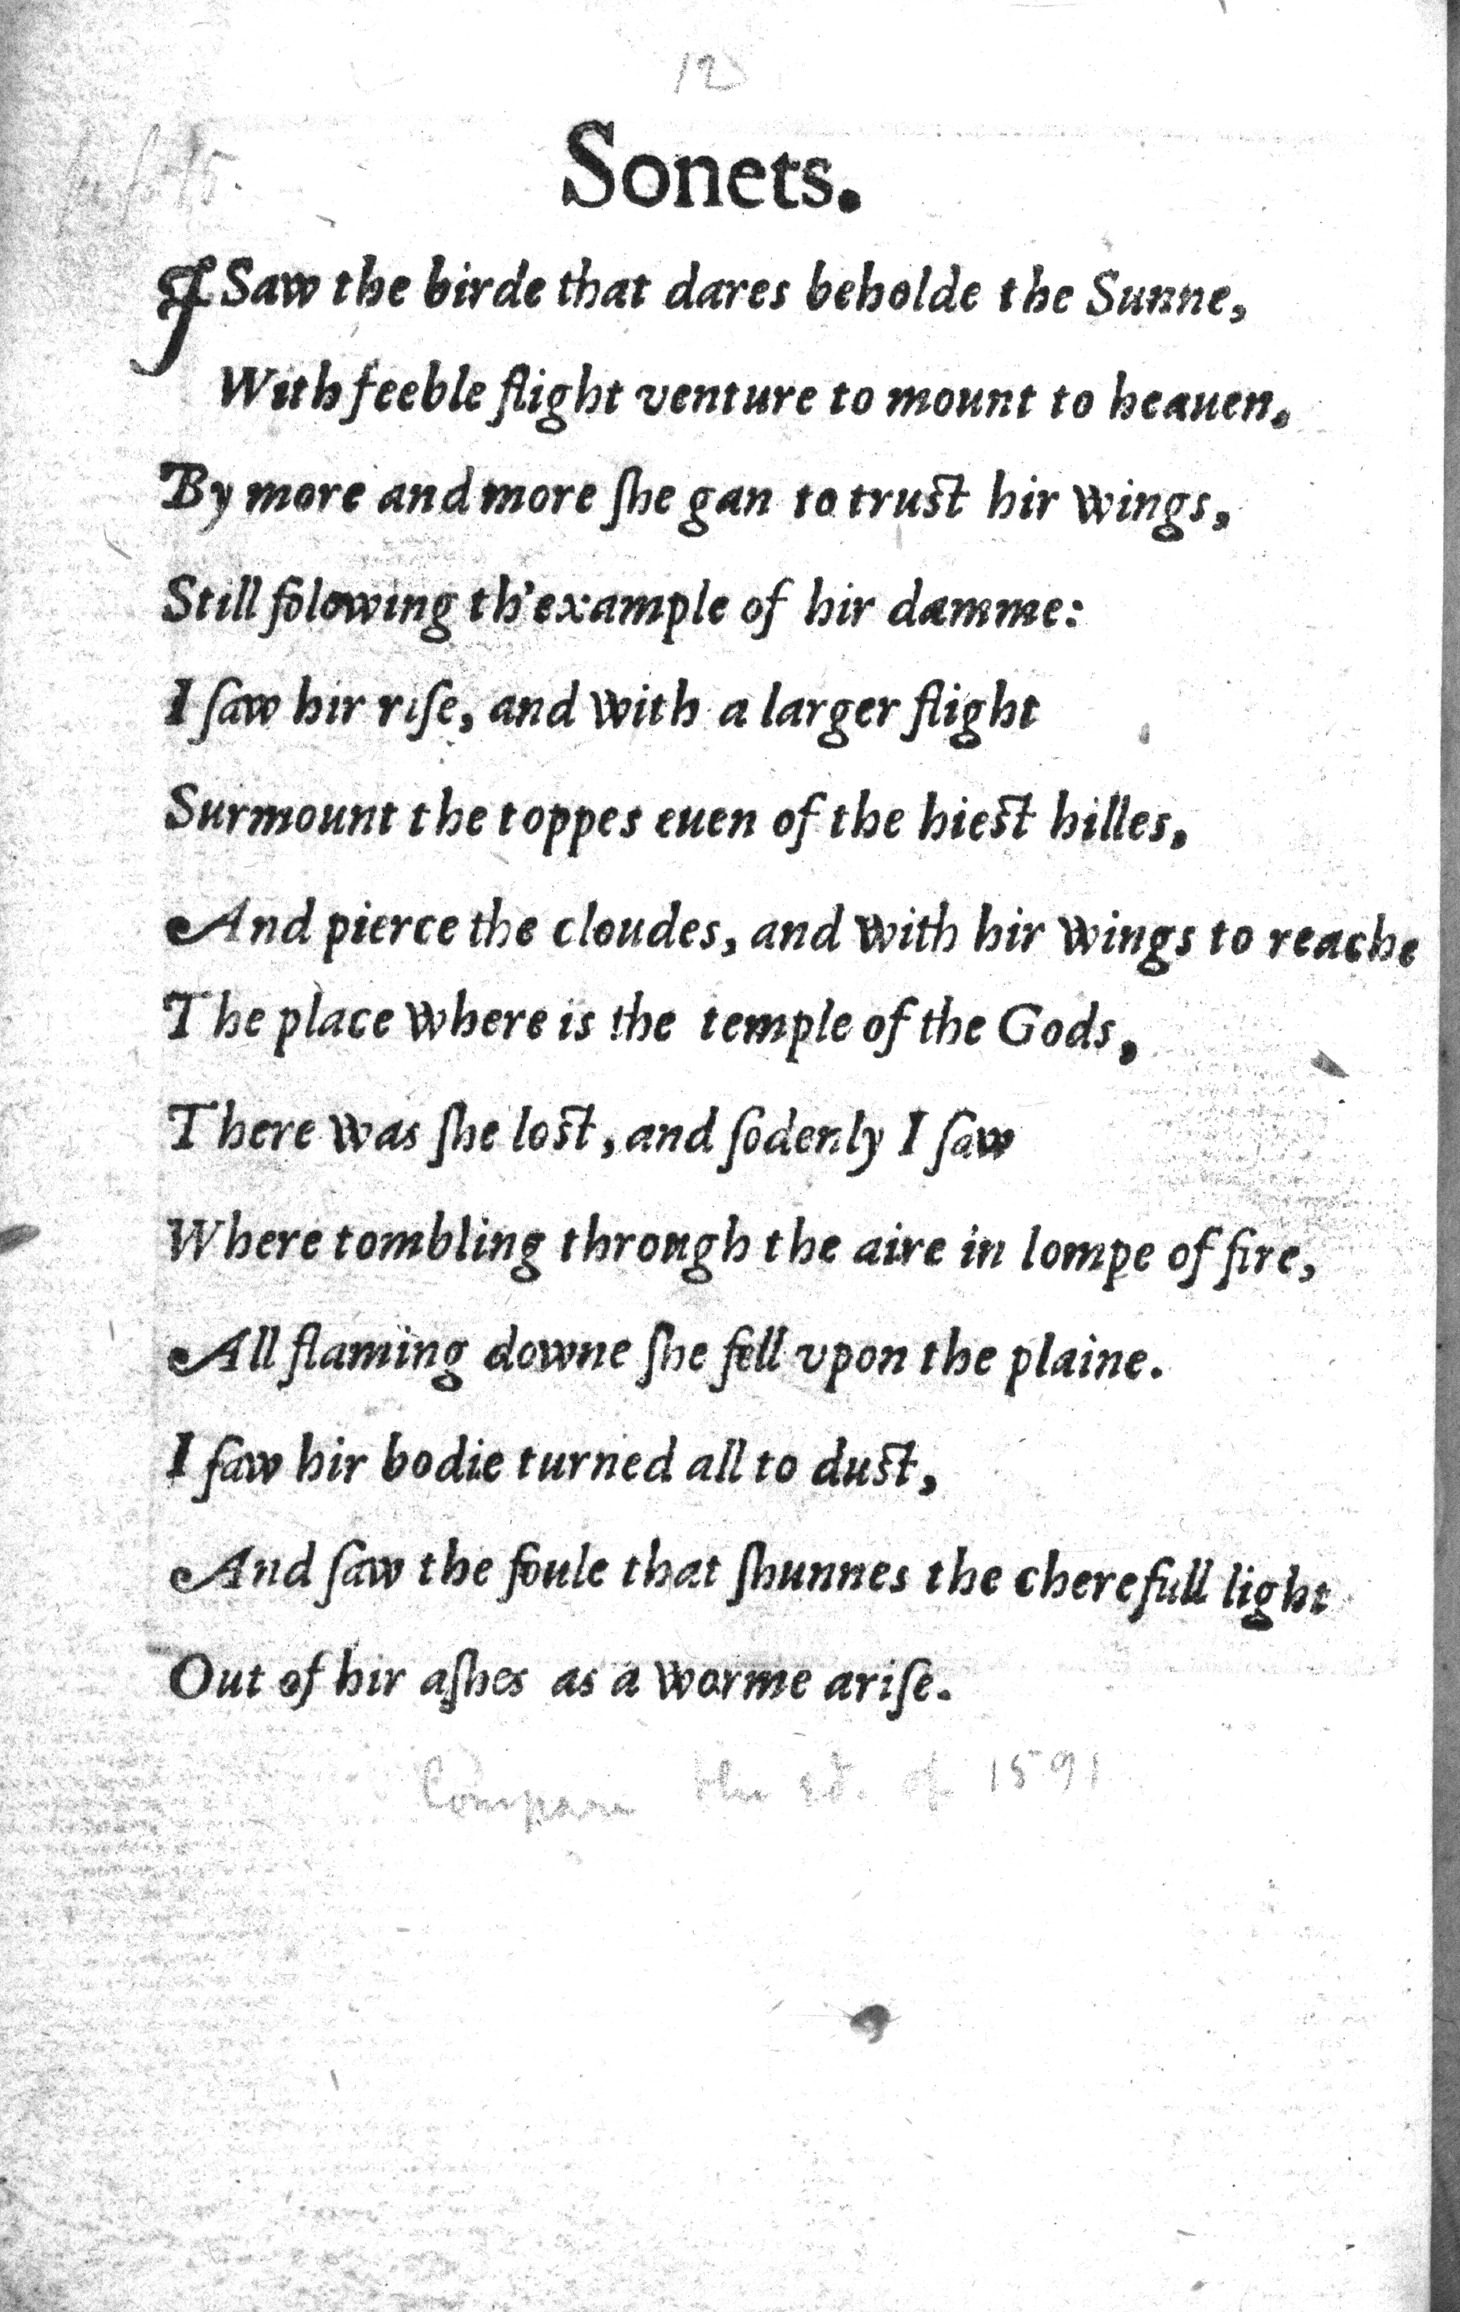 12
Sonets.
I Saw the birde that dares beholde the Sunne,
With feeble flight venture to mount to heauen,
By more and more ſhe gan to truſt hir wings,
Still folowing th'example of hir damme:
I ſaw hir riſe, and with a larger flight
Surmount the toppes euen of the hieſt hilles,
And pierce the cloudes, and with hir wings to reache
The place where is the temple of the Gods,
There was ſhe loſt, and ſodenly I ſaw
Where tombling through the aire in lompe of fire,
All flaming downe ſhe fell vpon the plaine.
I ſaw hir bodie turned all to duſt,
And ſaw the foule that ſhunnes the cherefull light
Out of hir aſhes as a worme ariſe.
Compare the ed. of 1591